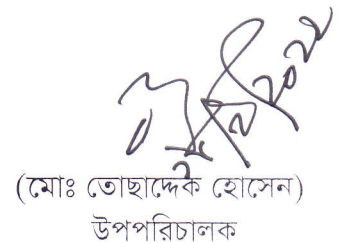 (মোঃ তোছাদ্দেক হোসেন)
উপপরিচালক